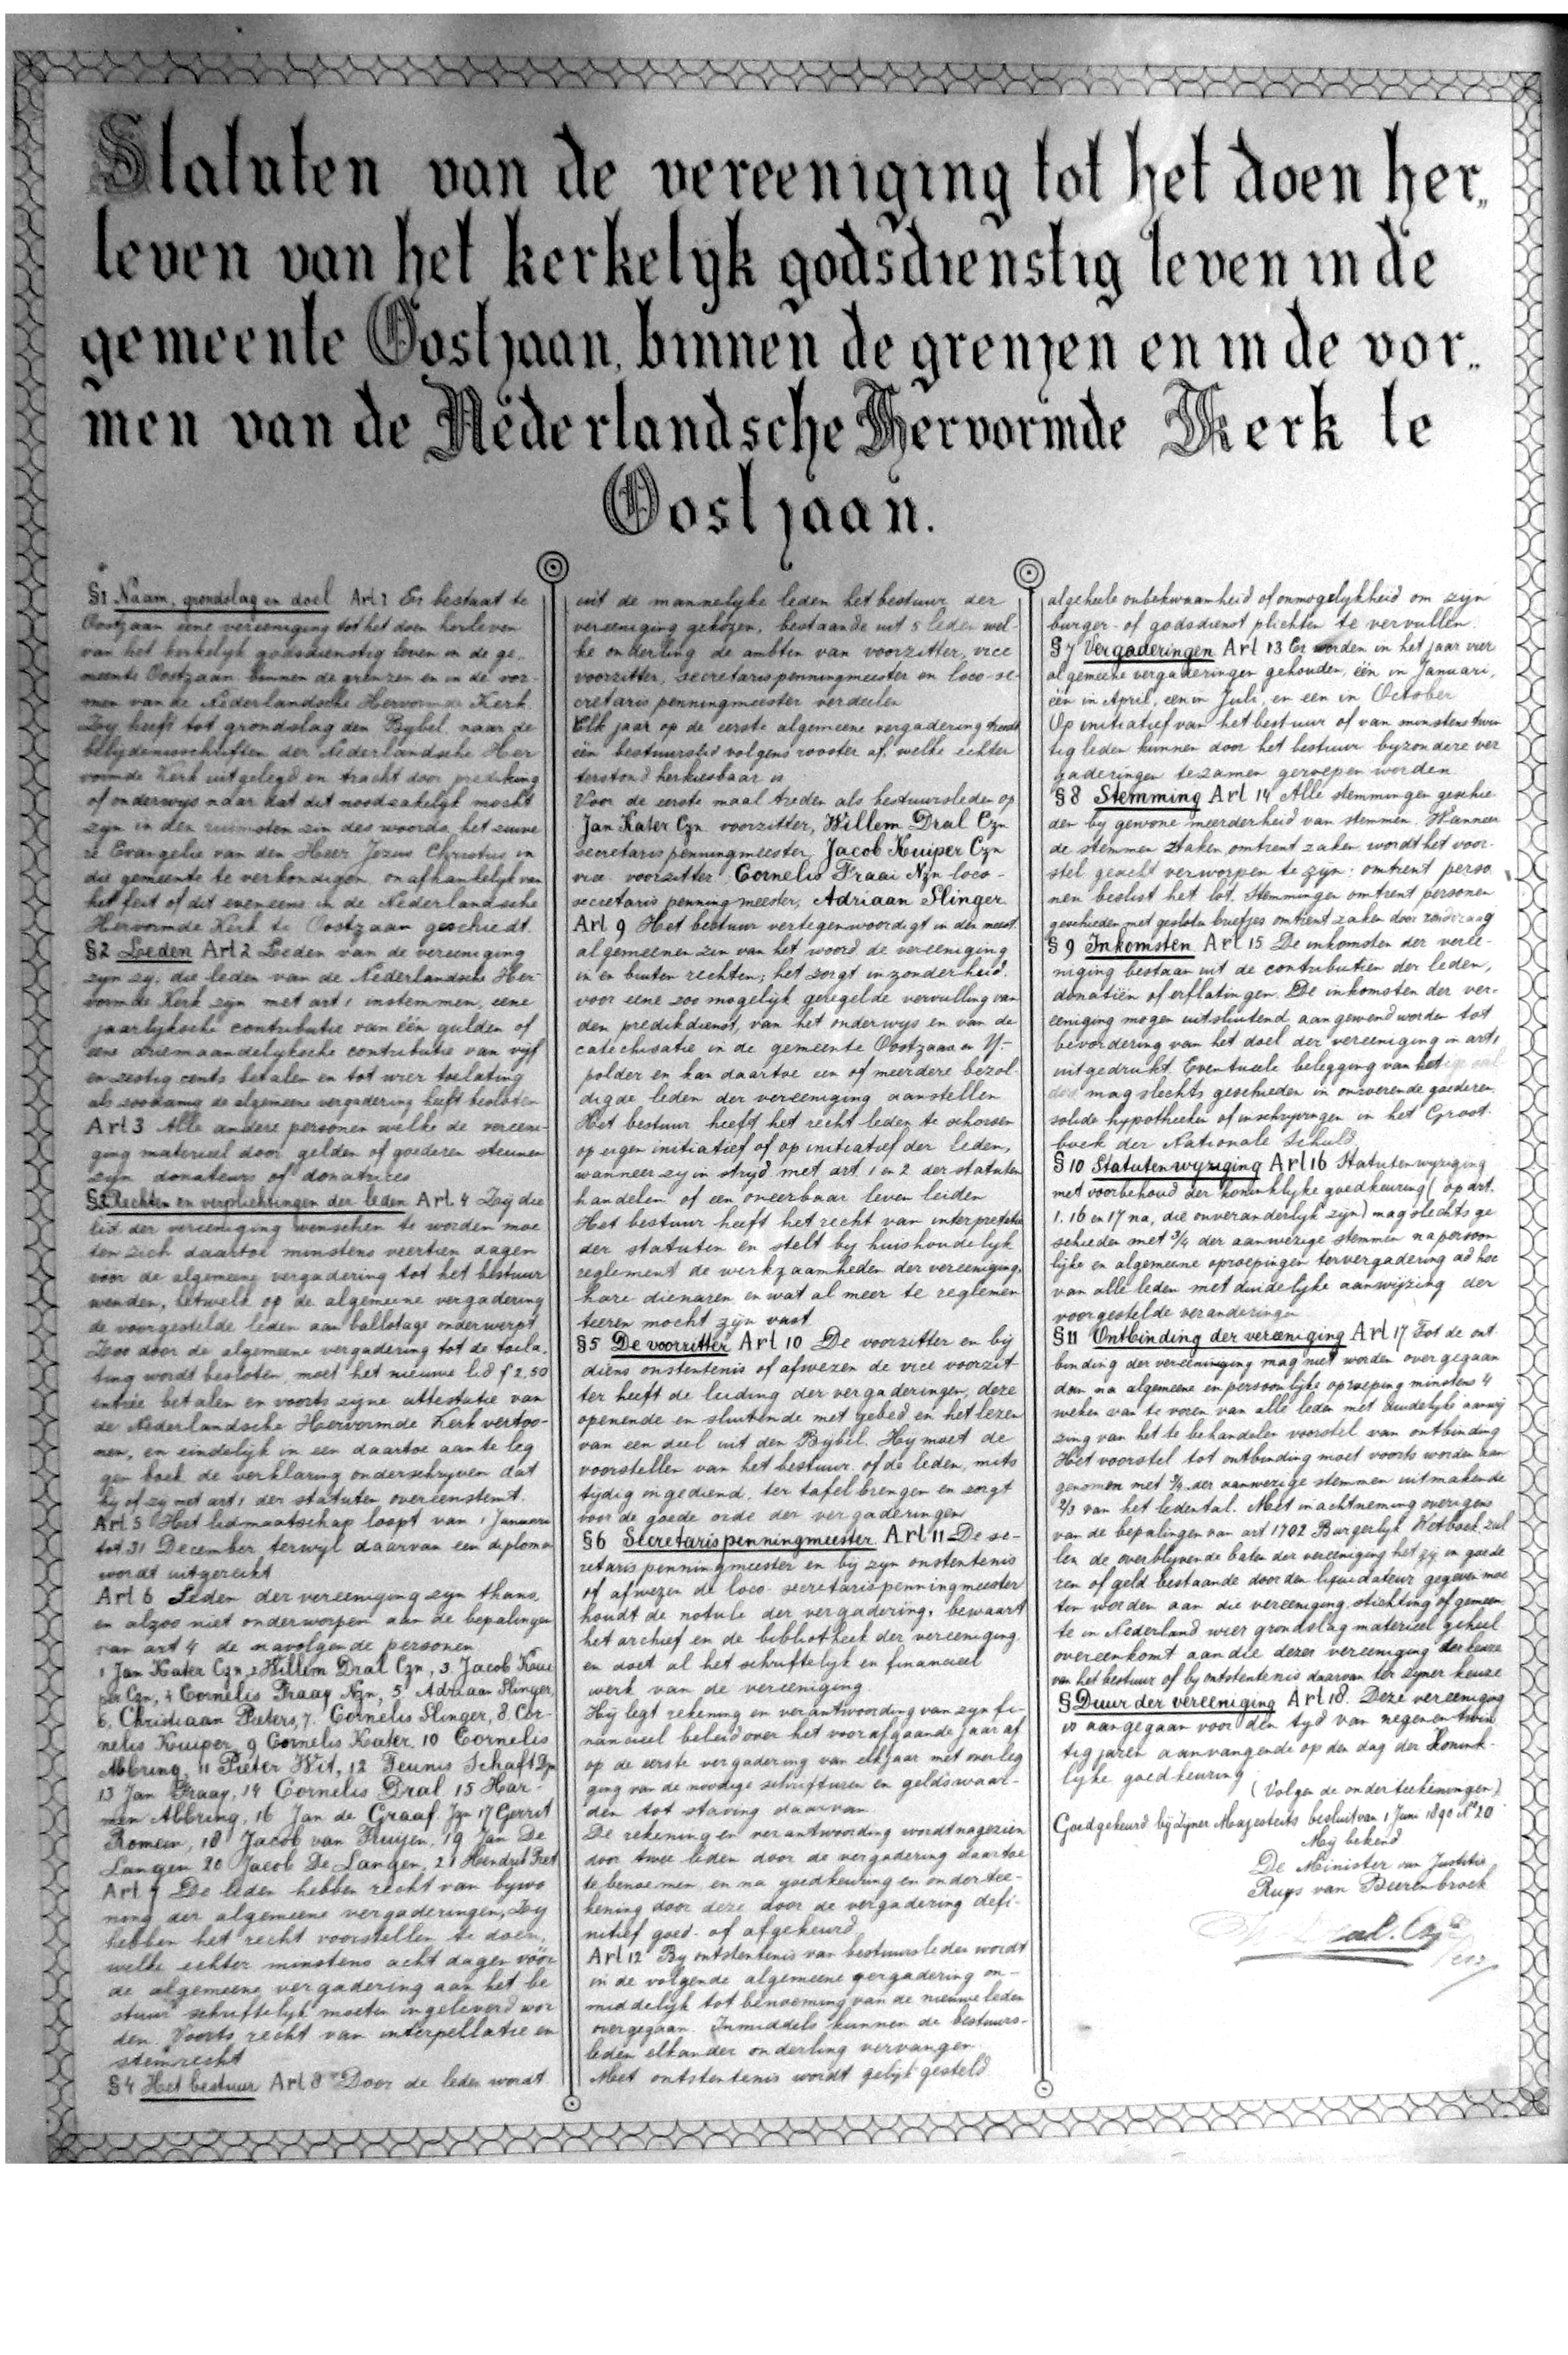 Statuten van de vereeniging tot het doen her„
leven van het kerkelyk godsdienstig leven in de
gemeente Oostzaan, binnen de grenzen en in de vor„
men van de Nederlandsche Hervormde Kerk te
Oostzaan.
§1 Naam, grondslag en doel Art 1 Er bestaat te
Oostzaan eene vereeniging tot het doen herleven
van het kerkelyk godsdienstig leven in de ge„
meente Oostzaan binnen de grenzen en in de vor-
men van de Nederlandsche Hervormde Kerk.
Zy heeft tot grondslag den Bybel, naar de
belydenisschriften der Nederlandsche Her
vormde Kerk uitgelegd en tracht door prediking
of onderwys naar dat dit noodzakelyk mocht
zyn in den ruimsten zin des woords, het zuive
re Evangelie van den Heer Jezus Christus in
die gemeente te verkondigen, onafhankelyk van
het feit of dit eveneens in de Nederlandsche
Hervormde Kerk te Oostzaan geschiedt.
§2 Leden Art 2 Leden van de vereeniging
zyn zy, die leden van de Nederlandsche Her-
vormde Kerk zyn, met art 1 instemmen, eene
jaarlyksche contributie van één gulden of
eene driemaandelyksche contributie van vyf
en zestig cents betalen en tot wier toelating
als zoodanig de algemeene vergadering heeft besloten
Art 3 Alle andere personen welke de vereeni-
ging materieel door gelden of goederen steunen
zyn donateurs of donatrices
§3 Rechten en verplichtingen der leden Art. 4 Zij die
lid der vereeniging wenschen te worden moe
ten zich daartoe minstens veertien dagen
voor de algemeene vergadering tot het bestuur
wenden, hetwelk op de algemeene vergadering
de voorgestelde leden aan ballotage onderwerpt
Zoo door de algemeene vergadering tot de toela„
ting wordt besloten, moet het nieuwe lid f 2.50
entrée betalen en voorts zyne attestatie van
de Nederlandsche Hervormde Kerk vertoo-
nen, en eindelijk in een daartoe aan te leg
gen boek de verklaring onderschryven dat
hy of zy met art 1 der statuten overeenstemt.
Art 5 Het lidmaatschap loopt van 1 Januari
tot 31 December terwyl daarvan een diploma
wordt uitgereikt
Art 6 Leden der vereeniging zyn thans,
en alzoo niet onderworpen aan de bepalingen
van art 4 de navolgende personen
1 Jan Kater Czn, 2 Willem Dral Czn, 3. Jacob Kui
per Czn, 4 Cornelis Fraay Nzn, 5 Adriaan Slinger,
6, Christiaan Pieters, 7. Cornelis Slinger, 8. Cor-
nelis Kuiper, 9 Cornelis Kater, 10 Cornelis
Abbring, 11 Pieter Wit, 12 Teunis Schaft Dzn
13 Jan Fraay, 14 Cornelis Dral 15 Har-
men Abbring, 16 Jan de Graaf Jzn 17 Gerrit
Romein, 18 Jacob van Fruijen, 19 Jan De
Langen 20 Jacob De Langen, 21 Hendrik Piet
Art 7 De leden hebben recht van bywo
ning der algemeene vergaderingen, Zy
hebben het recht voorstellen te doen,
welke echter minstens acht dagen vóór
de algemeene vergadering aan het be
stuur schriftelyk moeten ingeleverd wor
den. Voorts recht van interpellatie en
stemrecht
§4 Het bestuur Art 8 Door de leden wordt
uit de mannelyke leden het bestuur der
vereeniging gekozen, bestaande uit 5 leden wel-
ke onderling de ambten van voorzitter, vice
voorzitter, secretaris penningmeester en loco-se-
cretaris penningmeester verdeelen
Elk jaar op de eerste algemeene vergadering treedt
één bestuurslid volgens rooster af, welke echter
terstond herkiesbaar is
Voor de eerste maal treden als bestuursleden op
Jan Kater Czn voorzitter, Willem Dral Czn
secretaris penningmeester, Jacob Kuiper Czn
vice voorzitter Cornelis Fraai Nzn loco-
secretaris penningmeester, Adriaan Slinger
Art 9 Het bestuur vertegenwoordigt in den meest
algemeenen zin van het woord de vereeniging
in en buiten rechten; het zorgt inzonderheid
voor eene zoo mogelijk geregelde vervulling van
den predikdienst, van het onderwys en van de
catechisatie in de gemeente Oostzaan en Y-
polder en kan daartoe een of meerdere bezol
digde leden der vereeniging aanstellen
Het bestuur heeft het recht leden te schorsen
op eigen initiatief of op initiatief der leden,
wanneer zy in strijd met art 1 en 2 der statuten
handelen of een oneerbaar leven leiden
Het bestuur heeft het recht van interpretatie
der statuten en stelt by huishoudelyk
reglement de werkzaamheden der vereeniging,
hare dienaren en wat al meer te reglemen
teeren mocht zijn vast
§5 De voorzitter Art 10 De voorzitter en bij
diens onstentenis of afwezen de vice voorzit-
ter heeft de leiding der vergaderingen, deze
openende en sluitende met gebed en het lezen
van een deel uit den Bijbel. Hy moet de
voorstellen van het bestuur of de leden, mits
tijdig ingediend, ter tafel brengen en zorgt
voor de goede orde der vergaderingen
§6 Secretaris penningmeester Art 11 De se-
retaris penningmeester en bij zyn onstentenis
of afwezen de loco-secretaris-penningmeester
houdt de notule der vergadering, bewaart
het archief en de bibliotheek der vereeniging
en doet al het schriftelyk en financieel
werk van de vereeniging.
Hij legt rekening en verantwoording van zyn fi-
nancieel beleid over het voorafgaande jaar af
op de eerste vergadering van elk jaar met overleg
ging van de noodige schrifturen en geldswaar-
den tot staving daarvan
De rekening en verantwoording wordt nagezien
door twee leden door de vergadering daartoe
te benoemen en na goedkeuring en onderteе-
kening door deze door de vergadering defi-
nitief goed- of afgekeurd
Art 12 By ontstentenis van bestuursleden wordt
in de volgende algemeene vergadering on-
middelijk tot benoeming van de nieuwe leden
overgegaan. Inmiddels kunnen de bestuurs-
leden elkander onderling vervangen
Met ontstentenis wordt gelyk gesteld
algeheele onbekwaamheid of onmogelykheid om zijn
burger- of godsdienst plichten te vervullen.
§7 Vergaderingen Art 13 Er worden in het jaar vier
algemeene vergaderingen gehouden, één in Januari,
één in April, een in Juli, en een in October
Op initiatief van het bestuur of van minstens twin
tig leden kunnen door het bestuur byzondere ver
gaderingen tezamen geroepen worden
§8 Stemming Art 14 Alle stemmingen geschie
den by gewone meerderheid van stemmen. Wanneer
de stemmen staken omtrent zaken, wordt het voor-
stel geacht verworpen te zijn: omtrent perso
nen beslist het lot. Stemmingen omtrent personen
geschieden met gesloten briefjes omtrent zaken door rondvraag
§9 Inkomsten Art 15 De inkomsten der veree-
niging bestaan uit de contributiën der leden,
donatiën of erflatingen. De inkomsten der ver-
eeniging mogen uitsluitend aangewend worden tot
bevordering van het doel der vereeniging in art 1
uitgedrukt. Eventueele belegging van het
mag slechts geschieden in onroerende goederen,
solide hypotheeken of inschryvingen in het Groot-
boek der Nationale Schuld
§10 Statutenwyziging Art 16 Statutenwyziging
met voorbehoud der koninklyke goedkeuring (op art.
1. 16 en 17 na, die onveranderlyk zijn) mag slechts ge
schieden met 3/4 der aanwezige stemmen na persoon
lijke en algemeene oproepingen ter vergadering ad hoc
van alle leden met duidelyke aanwijzing der
voorgestelde veranderingen
§11 Ontbinding der vereeniging Art 17 Tot de ont
binding der vereeniniging mag niet worden overgegaan
dan na algemeene en persoonlijke oproeping minstens 4
weken van te voren van alle leden met duidelyke aanwij
zing van het te behandelen voorstel van ontbinding
Het voorstel tot ontbinding moet voorts worden aan
genomen met 3/4 der aanwezige stemmen uitmakende
2/3 van het ledental. Met inachtneming overigens
van de bepalingen van art 1702 Burgerlyk Wetboek, zul
len de overblyvende baten der vereeniging het zij in goede
ren of geld bestaande door den liquidateur gegeven moe
ten worden aan die vereeniging, stichting of gemeen
te in Nederland wier grondslag materieel geheel
overeenkomt aan die dezer vereeniging ter keuze
van het bestuur of by ontstentenis daarvan ter zyner keuze
§ Duur der vereeniging Art 18. Deze vereeniging
is aangegaan voor den tyd van negen en twin
tig jaren aanvangende op den dag der Konink-
lyke goedkeuring
(Volgen de onderteekeningen)
Goedgekeurd bij Zijner Majesteits besluit van 1 Juni 1890 No 20
Mij bekend
De Minister van Justitie
Ruys van Beerenbroek